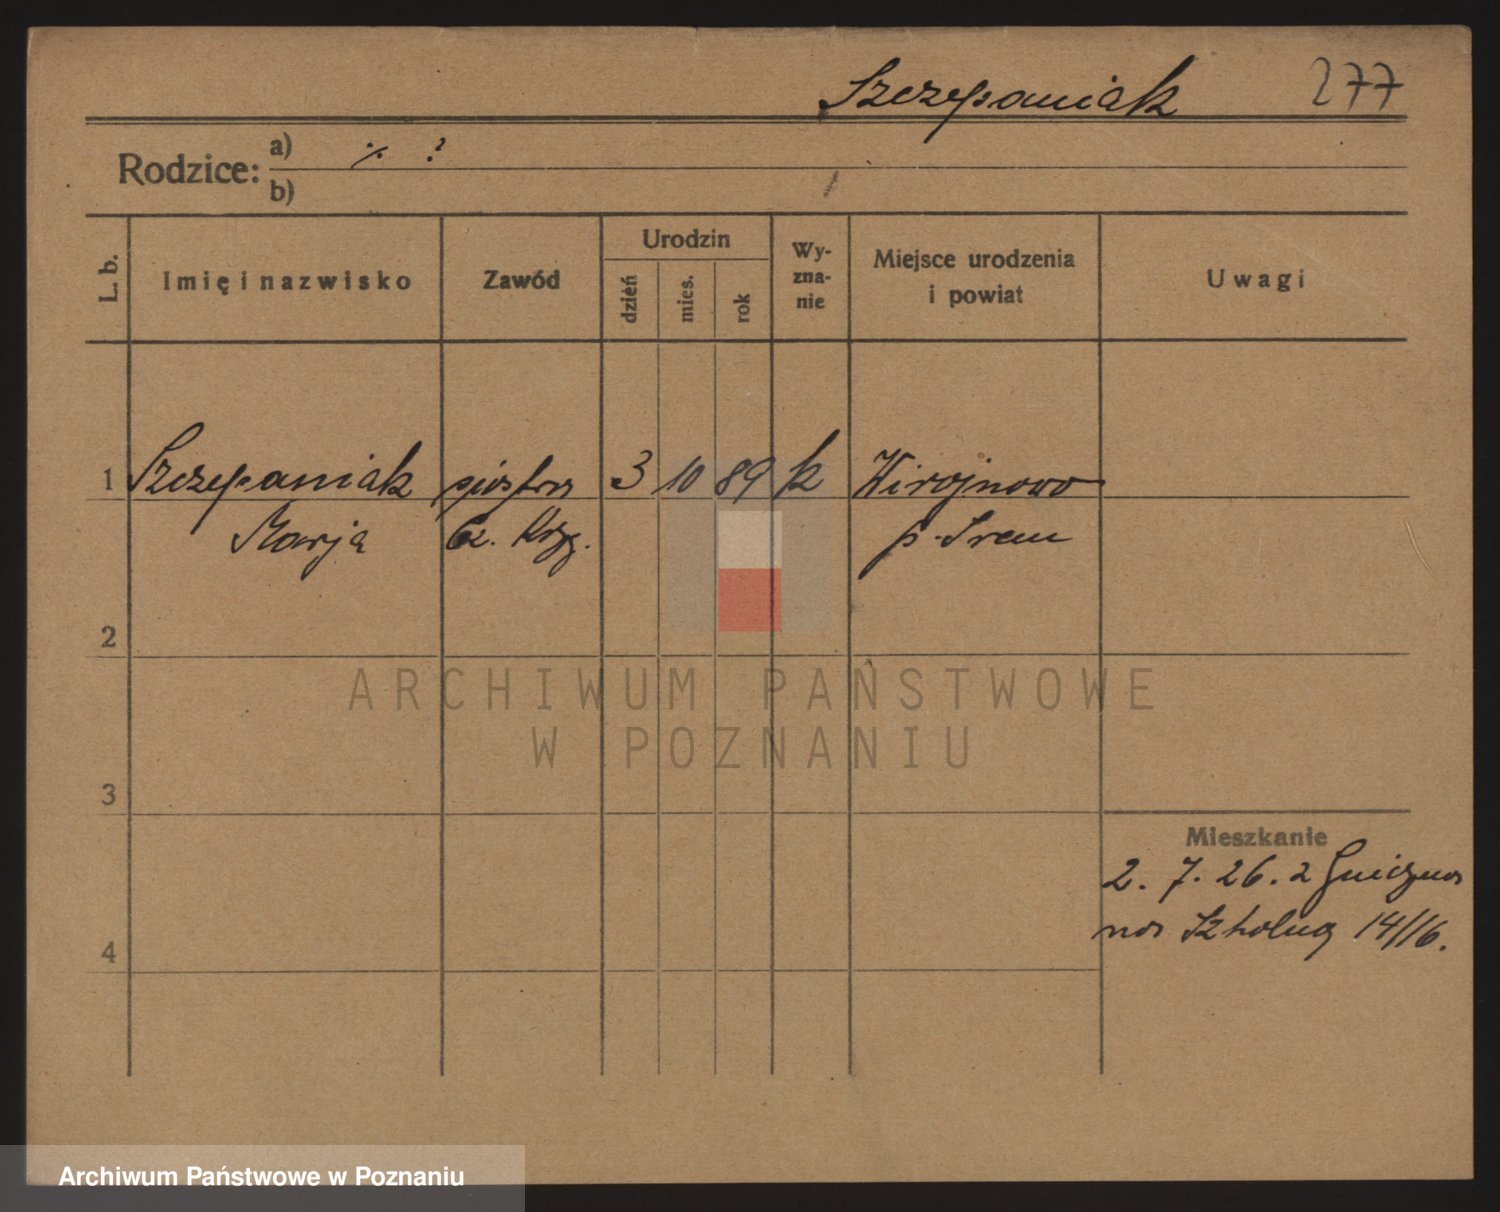 Szczepaniak 277
Rodzice: a) ·/. ?
b)
L. b. Imię i nazwisko Zawód Urodzin dzień mies. rok Wy-zna-nie Miejsce urodzenia i powiat Uwagi
1 Szczepaniak siostra 3 10 89 k
Marja Cz. Krzyż. p. Śrem
2
3
Mieszkanie
2. 7. 26. z Gniezna
na Szkolną 14/16.
4
ARCHIWUM PAŃSTWOWE
W POZNANIU
Archiwum Państwowe w Poznaniu